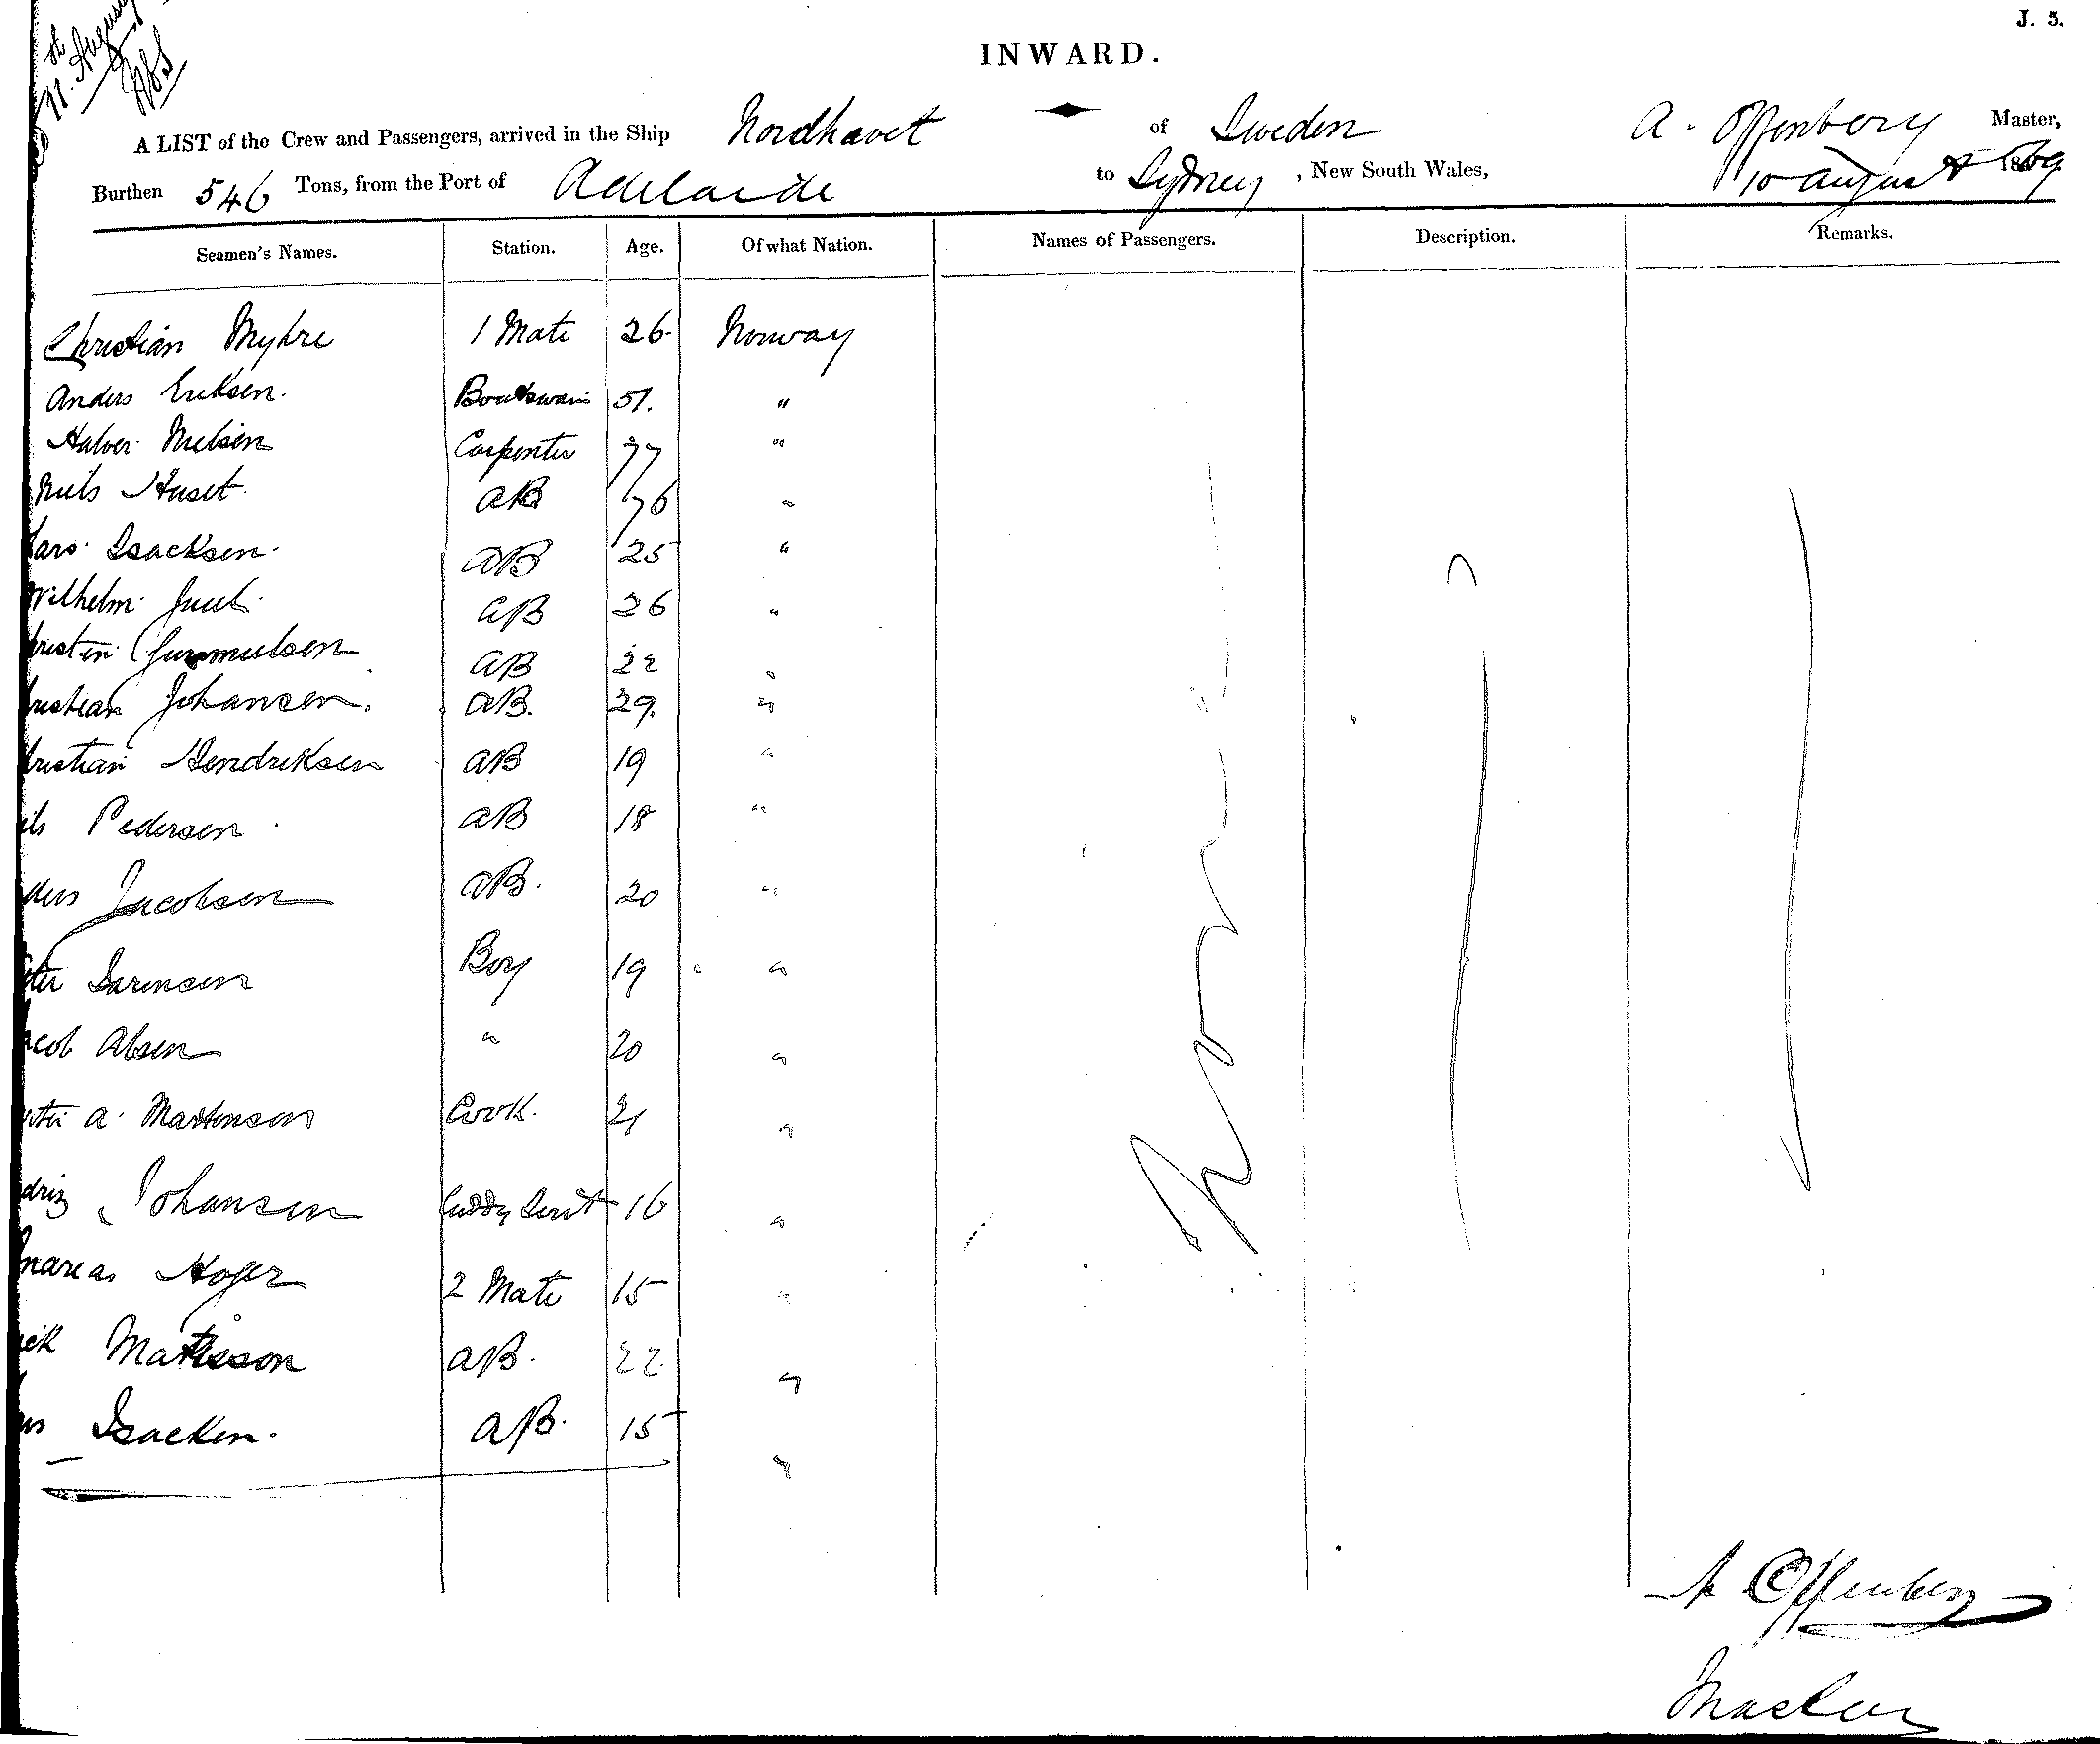 J. 5.
INWARD.
A LIST of the Crew and Passengers, arrived in the Ship Nordhavet of Sweden A. Offenberg Master,
Burthen 546 Tons, from the Port of Adelaide to Sydney, New South Wales, 10 August 1869
Seamen's Names. Station. Age. Of what Nation. Names of Passengers. Description. Remarks.
Christian Myhre 1 Mate 26 Norway
Anders Eriksen. Boatswain 51. "
Halvor Nielsen Carpenter 77 "
Niels Huset AB 76 "
Lars Isacksen. AB 25 "
Wilhelm Juul AB 26 "
AB 22 "
ristian Johansen. AB. 29. "
hristian Hendriksen AB 19 "
ils Pedersen AB 18 "
ders Jacobsen AB. 20 "
ter Sorensen Boy 19 "
acob Olsen " 20 "
a. Martenson Cook. 21 "
Johansen Cuddy Servt 16 "
Hoyer 2 Mate 15 "
Mattisson AB. 22 "
Isacksen. AB. 15 "
No
A Offenberg
Master